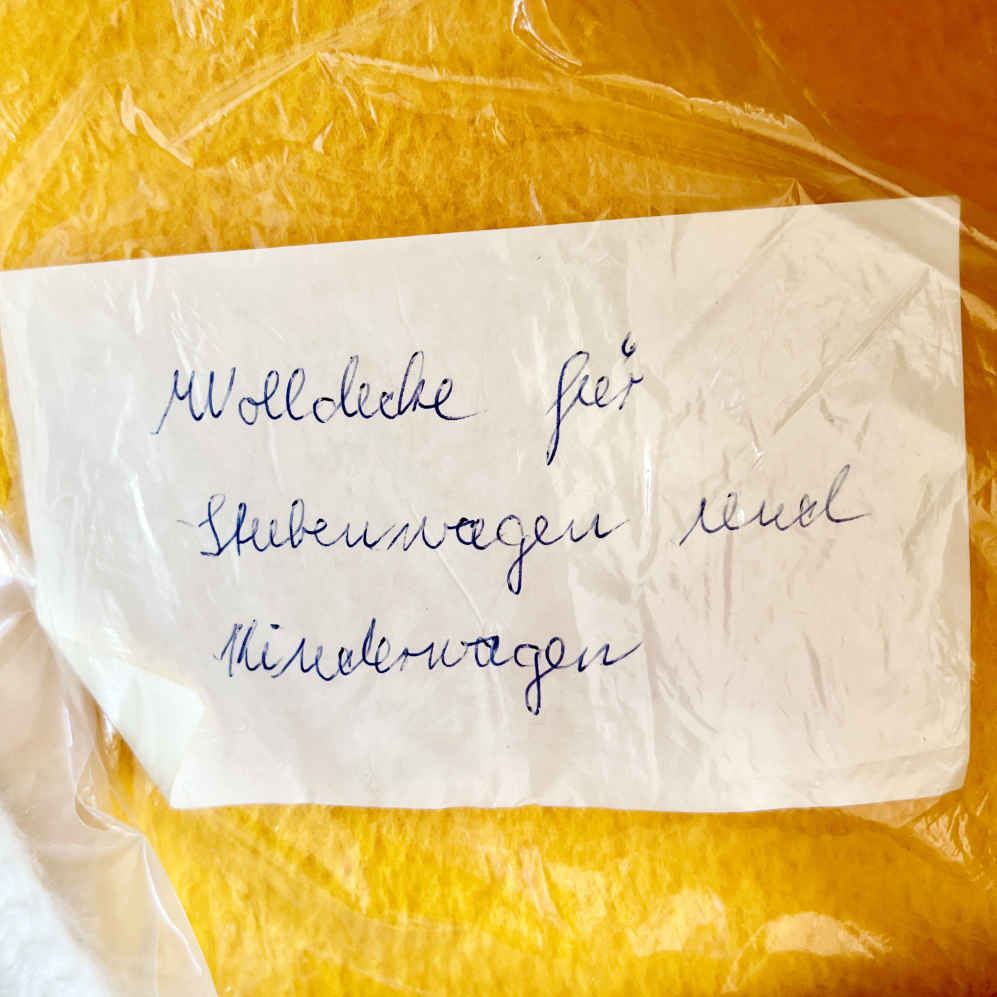 Wolldecke für
Stubenwagen und
Kinderwagen